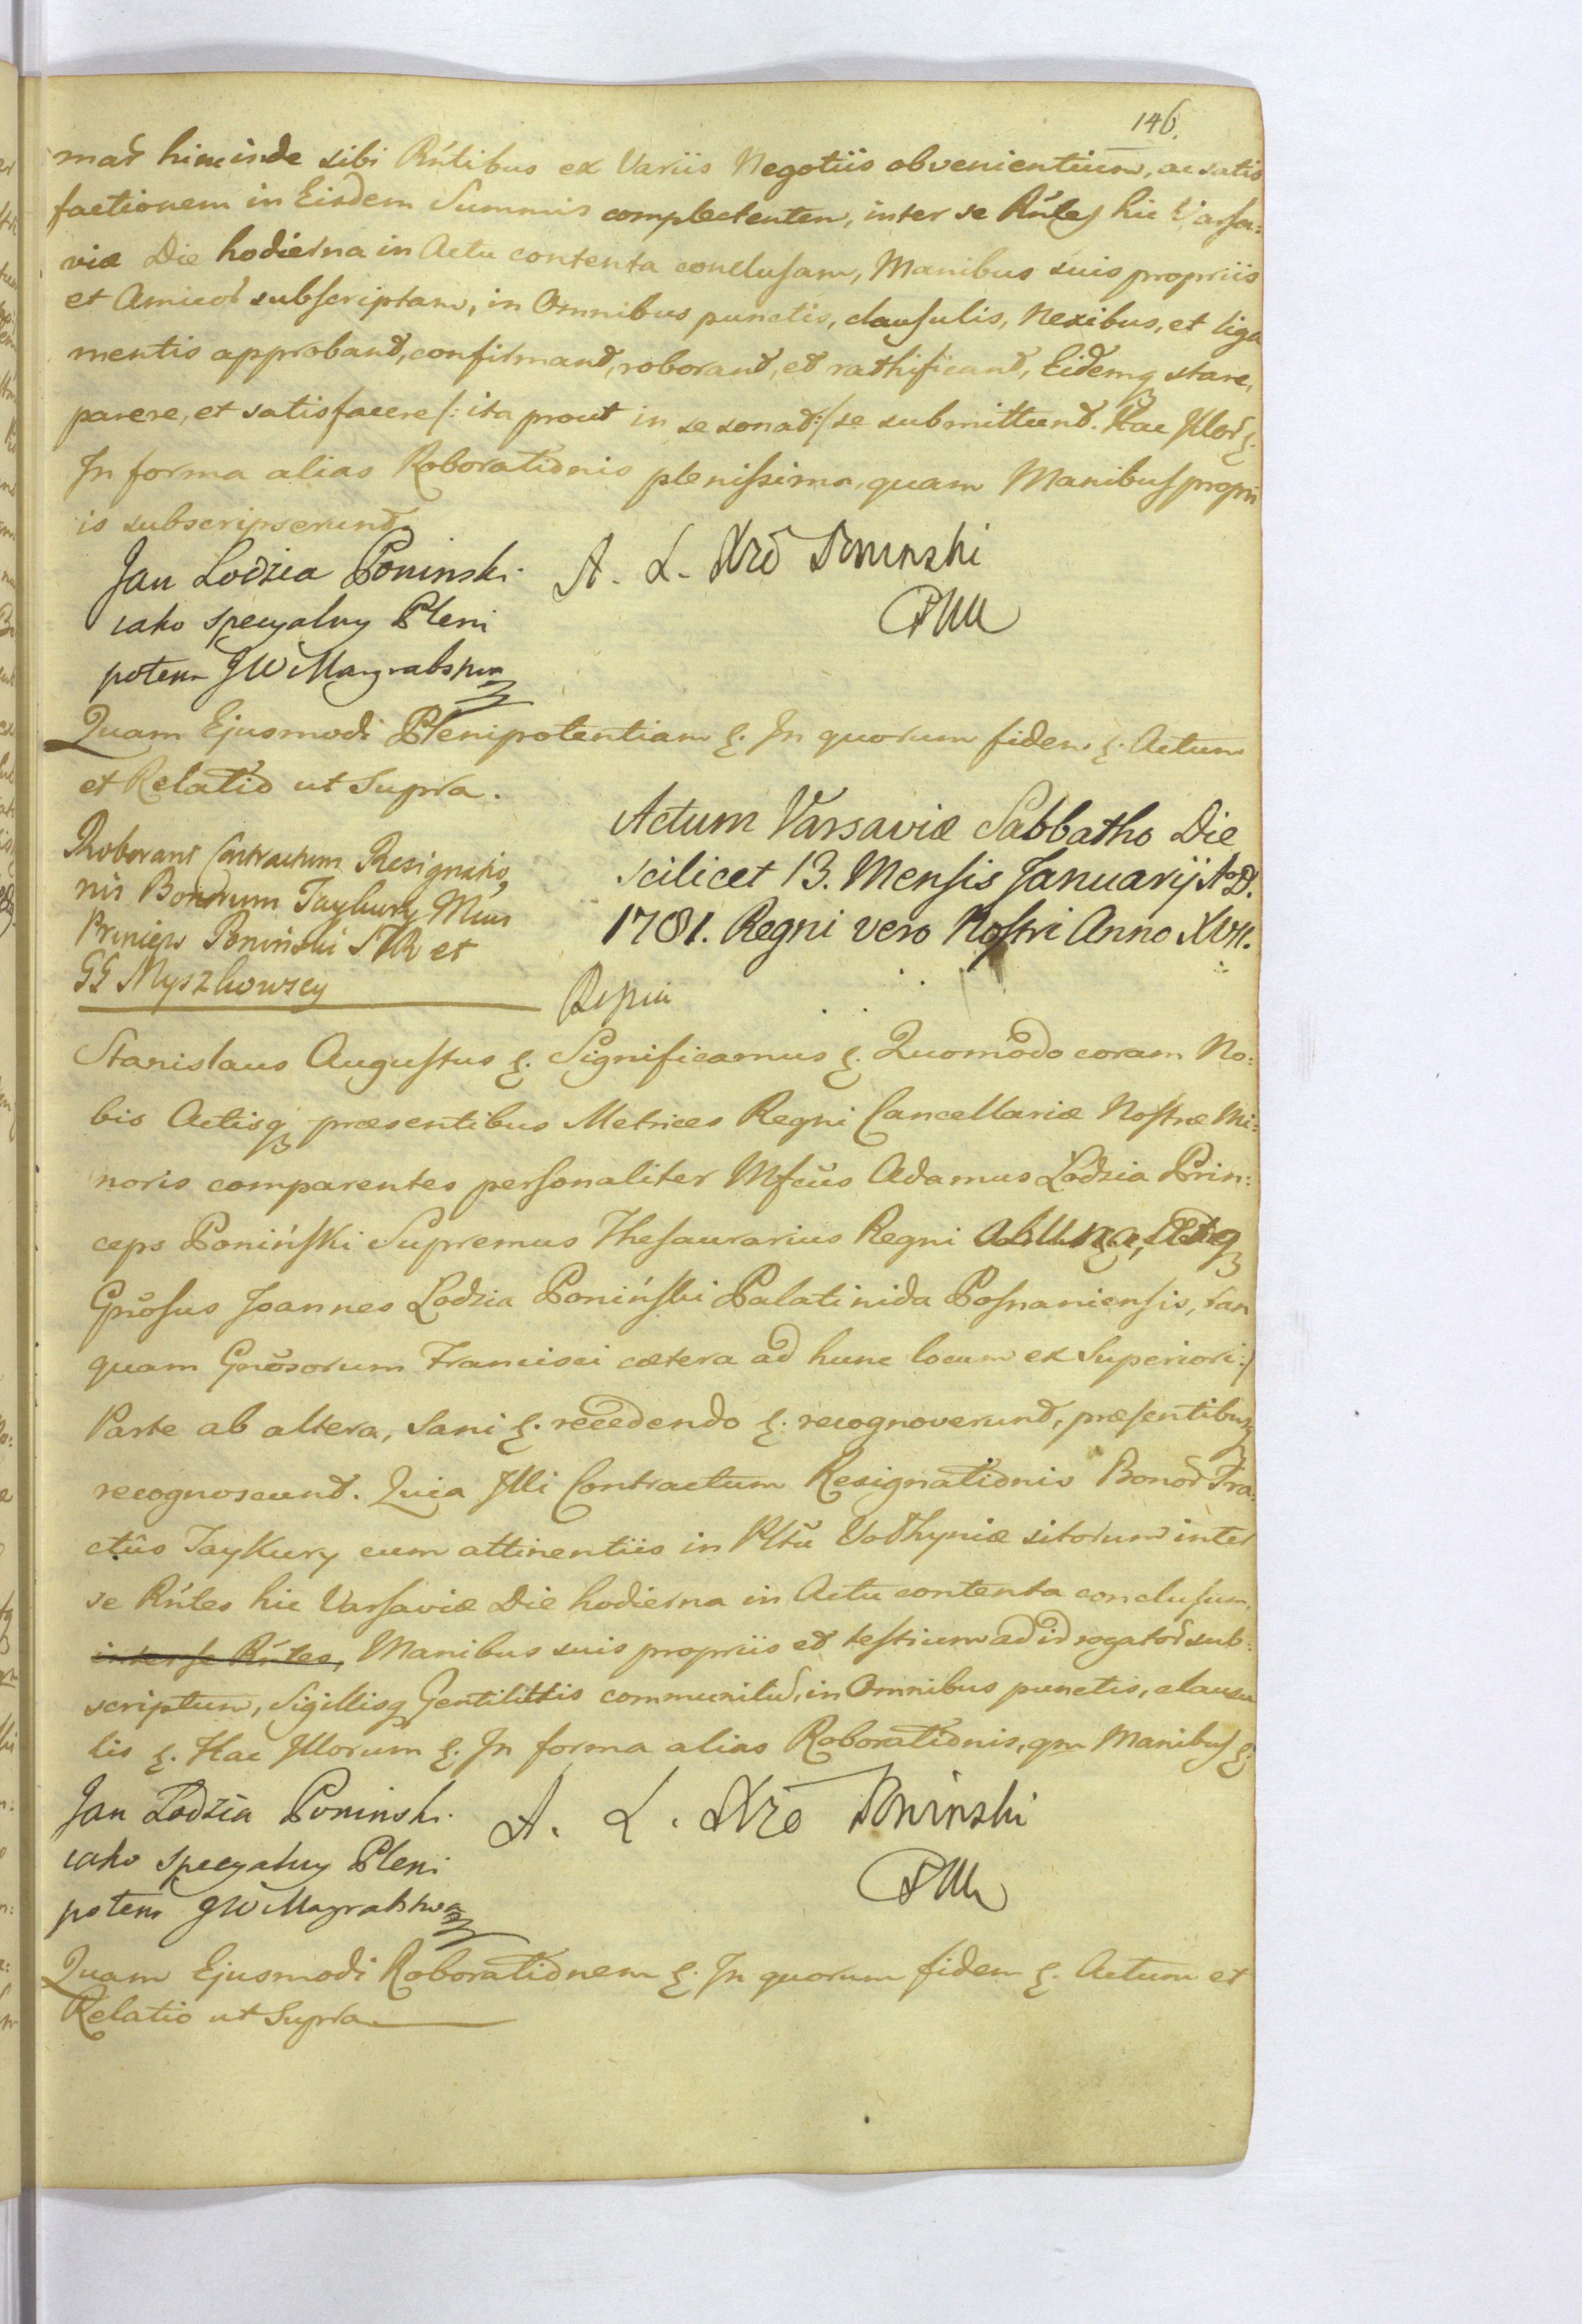 146.
mar̃ hincinde sibi Rńtibus ex Variis Negotiis obvenientium, ac satis
factionem in Eisdem Summis complectenten, inter se Rńtes hic Varsa:
viæ Die hodierna in Actu contenta conclusam, Manibus suis propriis
et Amicor̃ subscriptam, in Omnibus punctis, clausulis, Nexibus, et liga
mentis approbant, confirmant, roborant, et rathificant, Eidemq stare,
parere, et satisfacere /: ita prout in se sonat :/ se submittunt. Hac Illor̃ &.
In forma alias Roborationis plenissima, quam Manibus propri
is subscripserunt
Jan Lodzia Poninski A. L. Xże Poninski
iako specyalny Pleni
potent JW Margrabstwa
Quam Ejusmodi Plenipotentiam &. In quorum fidem &. Actum
et Relatio ut Supra.
Roborant Contractum Resignatio
nis Bonorum Taykury Mcus
Princeps Poniński STR et
GG Myszkowscy
Actum Varsaviæ Sabbatho Die
scilicet 13. Mensis Januarij Ao D.
1781. Regni vero Nostri Anno XVII.
Stanislaus Augustus &. Significamus &. Quomodo coram No:
bis Actisq præsentibus Metrices Regni Cancellariæ Nostræ Mi:
noris comparentes personaliter Mfcus Adamus Lodzia Prin:
ceps Poniński Supremus Thesaurarius Regni ab una, et
Gnõsus Joannes Lodzia Poniński Palatinida Posnaniensis, tan
quam Gnõsorum Francisci cætera ad hunc locum ex Superiori :/
Parte ab altera, Sani &. recedendo &. recognoverunt, præsentibusq
recognoscunt. Quia Illi Contractum Resignationis Bonor̃ Tra
ctûs Taykury cum attinentiis in Pltũ Volhyniæ sitorum inter
se Rńtes hic Varsaviæ Die hodierna in Actu contenta conclusum,
inter se Rńtes, Manibus suis propriis et testium ad id rogator̃ sub:
scriptum, Sigillisq Gentilittis communitũ, in Omnibus punctis, clausu
lis &. Hac Illorum &. In forma alias Roborationis, qm Manibus &
Jan Lodzia Poninski A. L. Xże Poninski
iako specyalny Pleni
potent JW Margrabstwa
Quam Ejusmodi Roborationem &. In quorum fidem &. Actum et
Relatio ut Supra